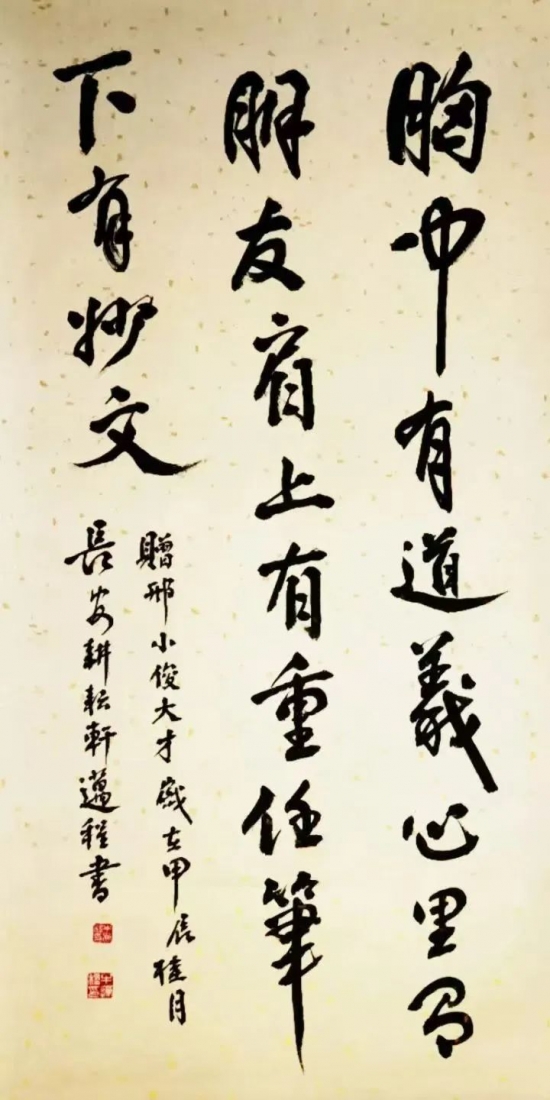 胸中有道義心里有
朋友肩上有重任筆
下有妙文
贈邢小俊大才 歲在甲辰桂月
長安耕耘軒邁程書